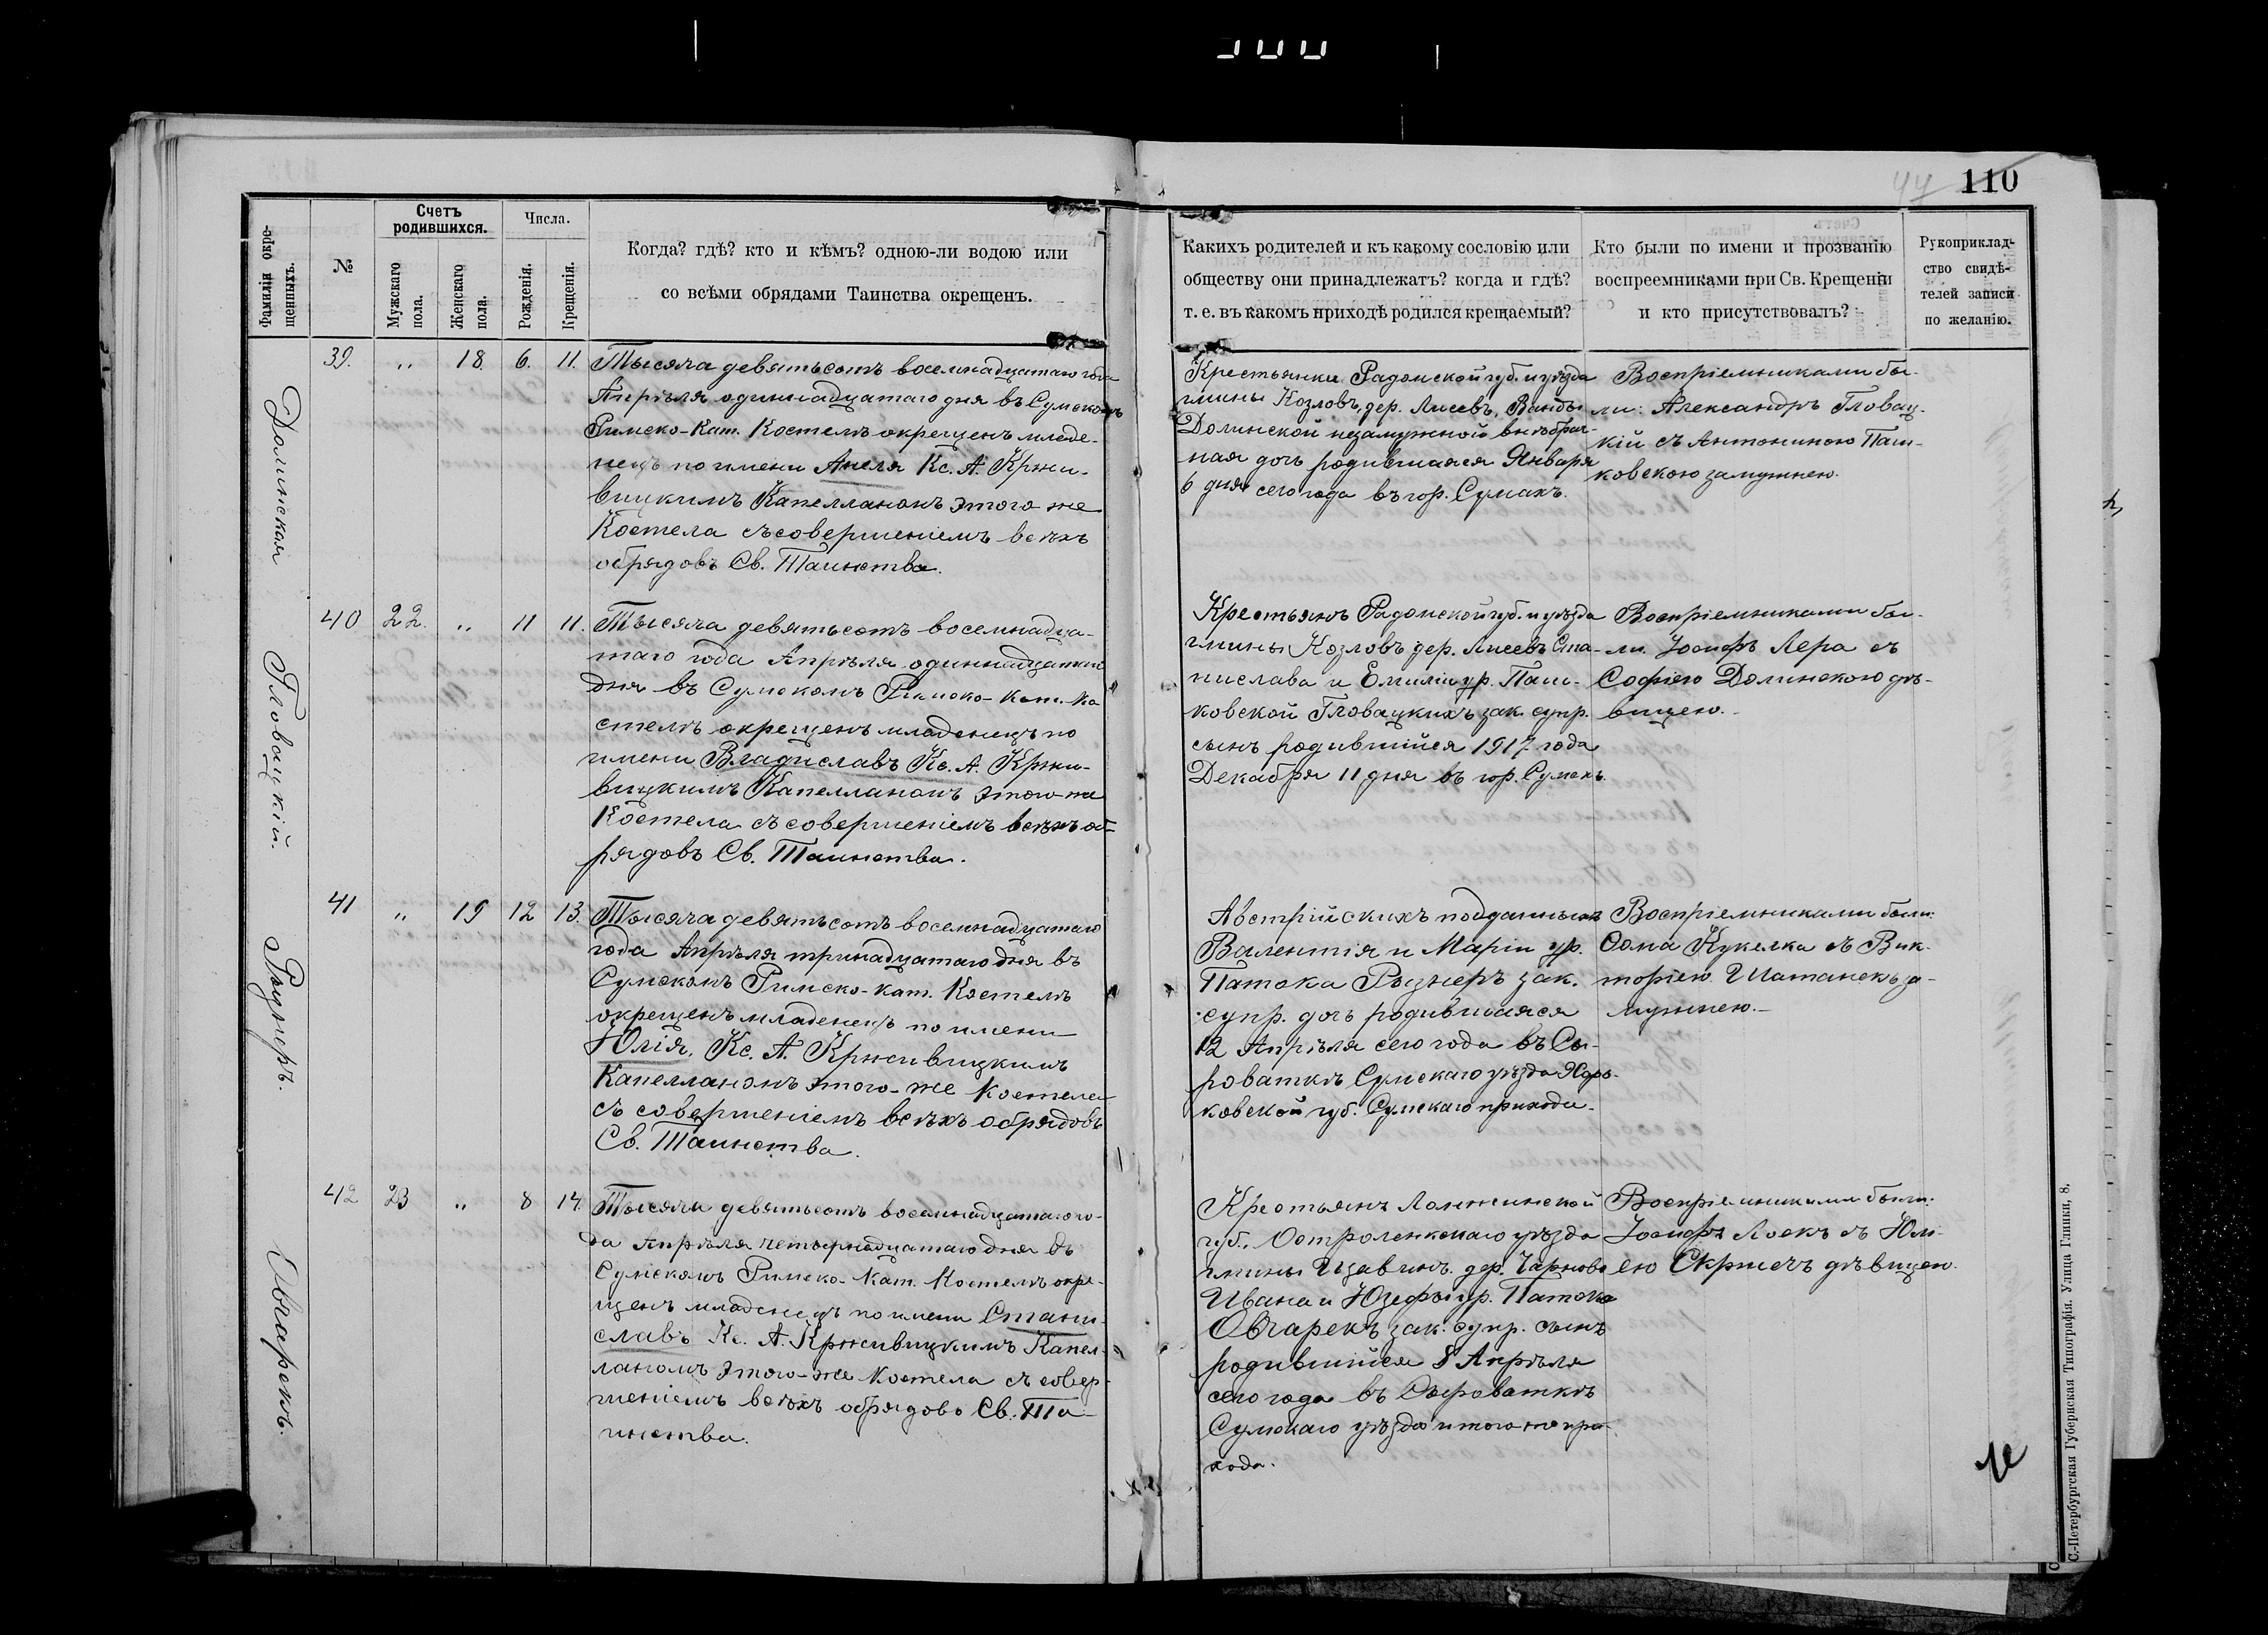 44 110
Фамиліи окре-
щенныхъ.
№
Счетъ
родившихся.
Мужскаго
пола.
Женскаго
пола.
Числа.
Рожденія.
Крещенія.
Когда? гдѣ? кто и кѣмъ? одною-ли водою или
со всѣми обрядами Таинства окрещенъ.
Какихъ родителей и къ какому сословію или
обществу они принадлежатъ? когда и гдѣ?
т. е. въ какомъ приходѣ родился крещаемый?
Кто были по имени и прозванію
воспреемниками при Св. Крещеніи
и кто присутствовалъ?
Рукоприклад-
ство свидѣ-
телей записи
по желанію.
Долинская
39. „ 18. 6. 11.
Тысяча девятьсотъ восемнадцатаго года
Апрѣля одиннадцатаго дня въ Сумскомъ
Римско-Кат. Костелѣ окрещенъ младе-
нецъ по имени Анеля Кс. А. Кржи-
вицкимъ Капелланомъ этого же
Костела съ совершеніемъ всѣхъ
обрядовъ Св. Таинства.
Крестьянки Радомской губ. и уѣзда
гмины Козловъ, дер. Лисевъ, Ванды
Долинской незамужной внѣбрач-
ная дочь родившаяся Января
6 дня сего года въ гор. Сумахъ.
Воспріемниками бы-
ли: Александръ Гловац-
кій съ Антониною Паш-
ковскою замужнею.
Гловацкій.
40 22. „ 11 11.
Тысяча девятьсотъ восемнадца-
таго года Апрѣля одиннадцатаго
дня въ Сумскомъ Римско-Кат. Ко
стелѣ окрещенъ младенецъ по
имени Владиславъ Кс. А. Кржи-
вицкимъ Капелланомъ этого-же
Костела съ совершеніемъ всѣхъ об-
рядовъ Св. Таинства.
Крестьянъ Радомской губ. и уѣзда
гмины Козловъ дер. Лисевъ Ста-
нислава и Емиліи ур. Паш-
ковской Гловацкихъ зак. супр.
сынъ родившійся 1917 года
Декабря 11 дня въ гор. Сумахъ.
Воспріемниками бы-
ли Іосифъ Лера съ
Софіею Долинскою дѣ-
вицею.
Рызнеръ.
41 „ 19 12 13.
Тысяча девятьсотъ восемнадцатаго
года Апрѣля тринадцатаго дня въ
Сумскомъ Римско-кат. Костелѣ
окрещенъ младенецъ по имени
Юлія, Кс. А. Крживицкимъ
Капелланомъ этого-же Костела
съ совершеніемъ всѣхъ обрядовъ
Св. Таинства.
Австрійскихъ подданныхъ
Валентія и Маріи ур.
Патока Рызнеръ зак.
супр. дочь родившаяся
12 Апрѣля сего года въ Сы-
роваткѣ Сумскаго уѣзда Харь-
ковской губ. Сумскаго прихода.
Воспріемниками были:
Ѳома Кукелка съ Вик-
торіею Шатанекъ за-
мужнею.
Овчарекъ.
42 23 „ 8 14.
Тысяча девятьсотъ восемнадцатаго го-
да Апрѣля четырнадцатаго дня въ
Сумскомъ Римско-Кат. Костелѣ окре-
щенъ младенецъ по имени Стани-
славъ Кс. А. Крживицкимъ Капел-
ланомъ этого-же Костела съ совер-
шеніемъ всѣхъ обрядовъ Св. Та-
инства.
Крестьянъ Ломжинской
губ. Остроленкскаго уѣзда
гмины дер.
Ивана и Юзефы ур. Патока
Овчарекъ зак. супр. сынъ
родившійся 8 Апрѣля
сего года въ Сыроваткѣ
Сумскаго уѣзда и того же при-
хода.
Воспріемниками были:
Іосифъ Лоекъ съ Юлі-
ею дѣвицею.
С.-Петербургская Губернская Типографія. Улица Глинки, 8.